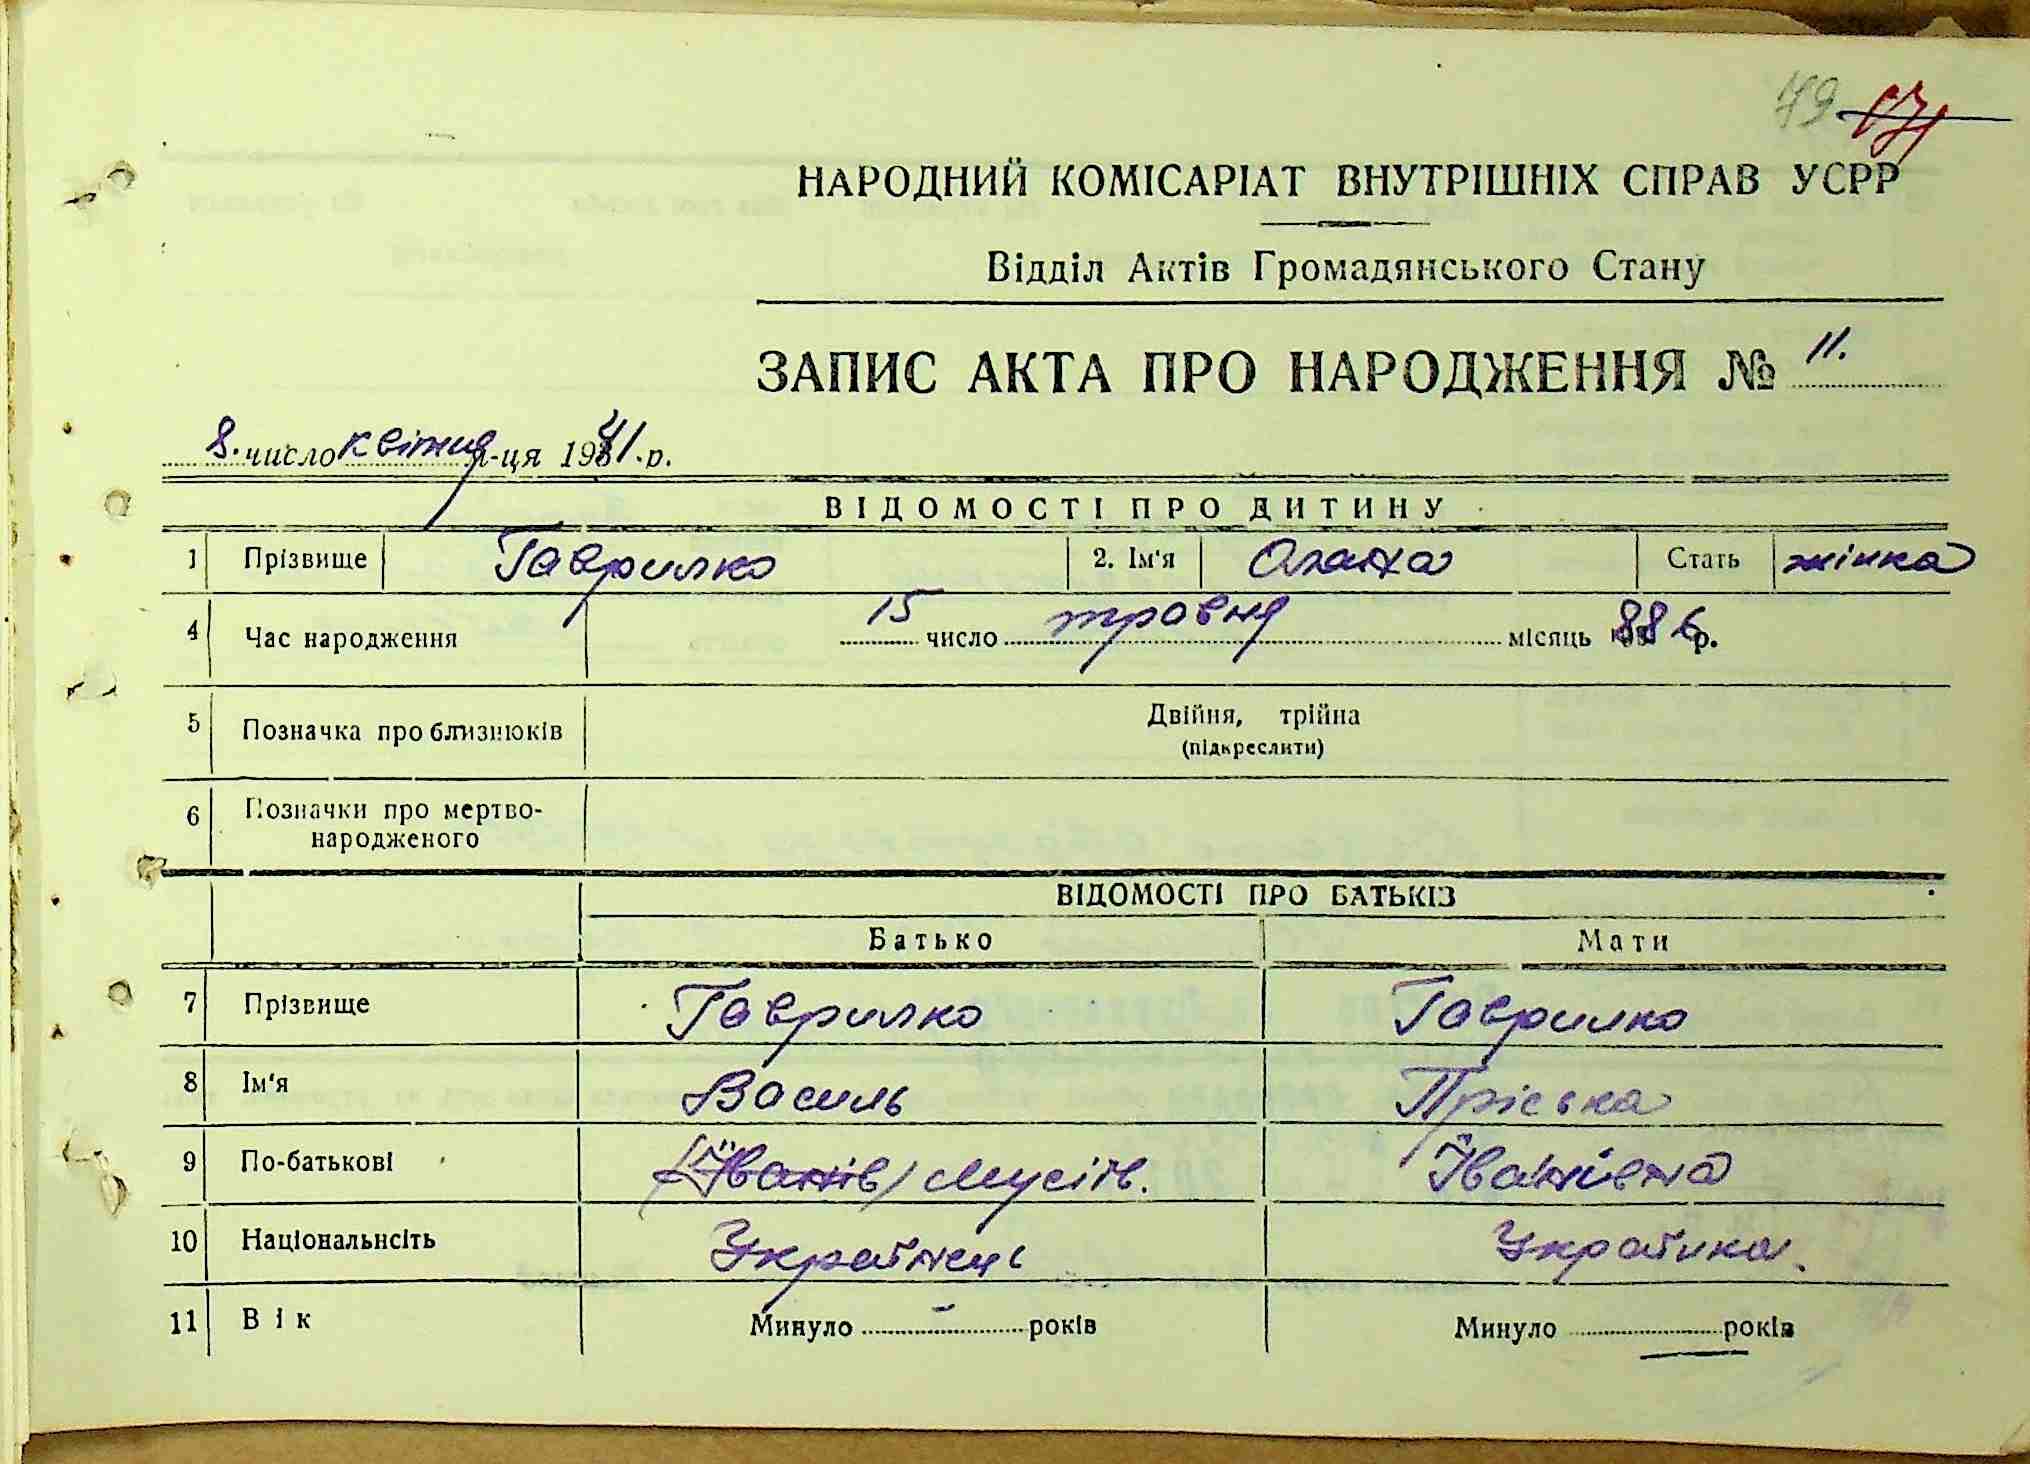 79 171
НАРОДНИЙ КОМІСАРІАТ ВНУТРІШНІХ СПРАВ УСРР
Відділ Актів Громадянського Стану
ЗАПИС АКТА ПРО НАРОДЖЕННЯ № 11.
8. число квітня м-ця 1941 р.
ВІДОМОСТІ ПРО ДИТИНУ
1 Прізвище Гаврилко 2. Ім'я Олена Стать жінка
4 Час народження 15 число травня місяць 1886 р.
5 Позначка про близнюків Двійня, трійна
(підкреслити)
6 Позначки про мертво-
народженого
ВІДОМОСТІ ПРО БАТЬКІВ
Батько Мати
7 Прізвище Гаврилко Гаврилко
8 Ім'я Василь Пріська
9 По-батькові (Іванів) Мусіїв. Іванівна
10 Національнсіть Українець Українка.
11 Вік Минуло - років Минуло років